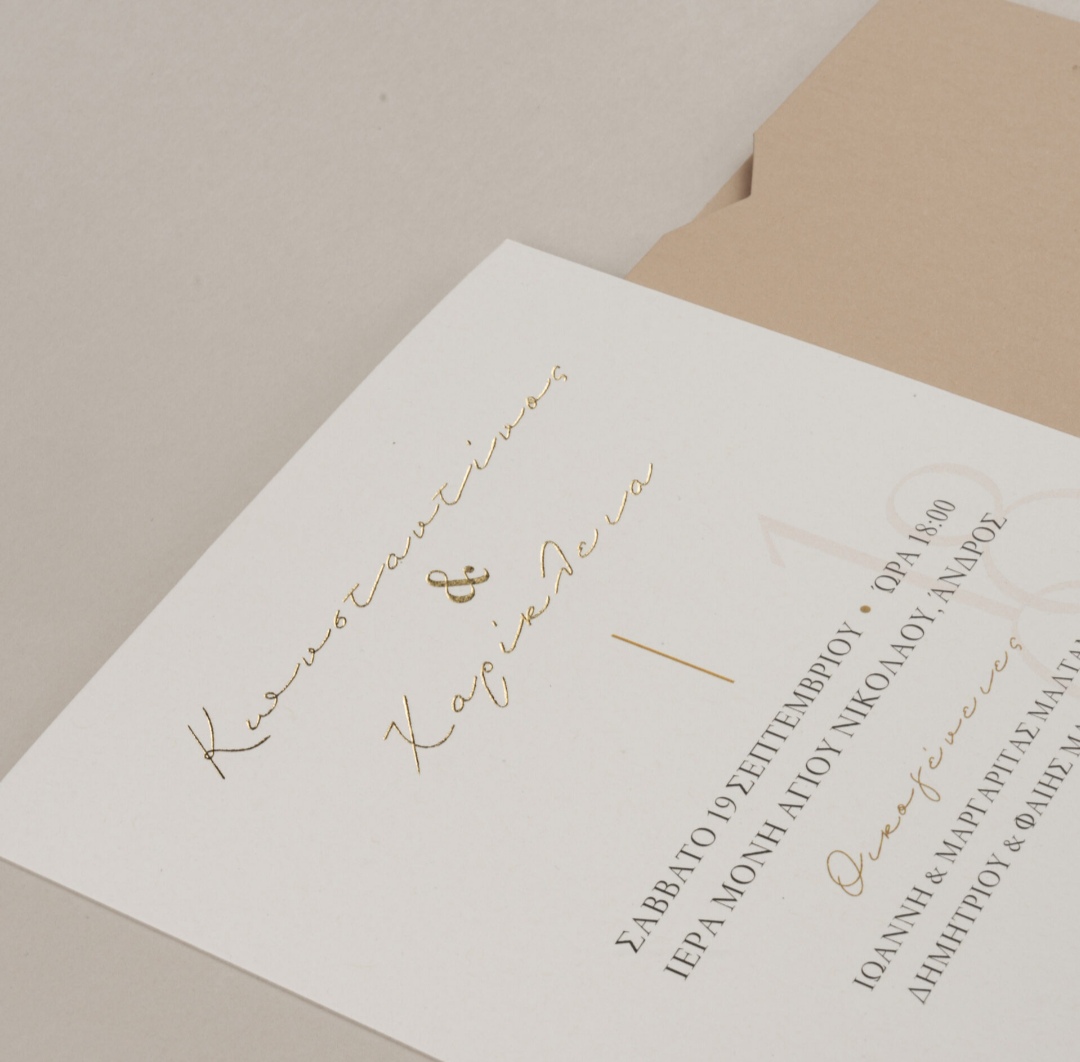 Κωνσταντίνος
&
Χαρίκλεια
ΣΑΒΒΑΤΟ 19 ΣΕΠΤΕΜΒΡΙΟΥ • ΏΡΑ 18:00
ΙΕΡΑ ΜΟΝΗ ΑΓΙΟΥ ΝΙΚΟΛΑΟΥ, ΆΝΔΡΟΣ
Οικογένειες
ΙΩΑΝΝΗ & ΜΑΡΓΑΡΙΤΑΣ
ΔΗΜΗΤΡΙΟΥ & ΦΑΙΗΣ